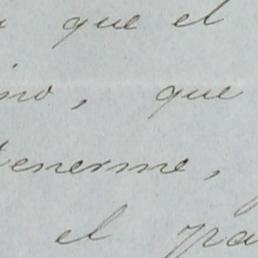 que el
ino, que
tenerme,
el pa